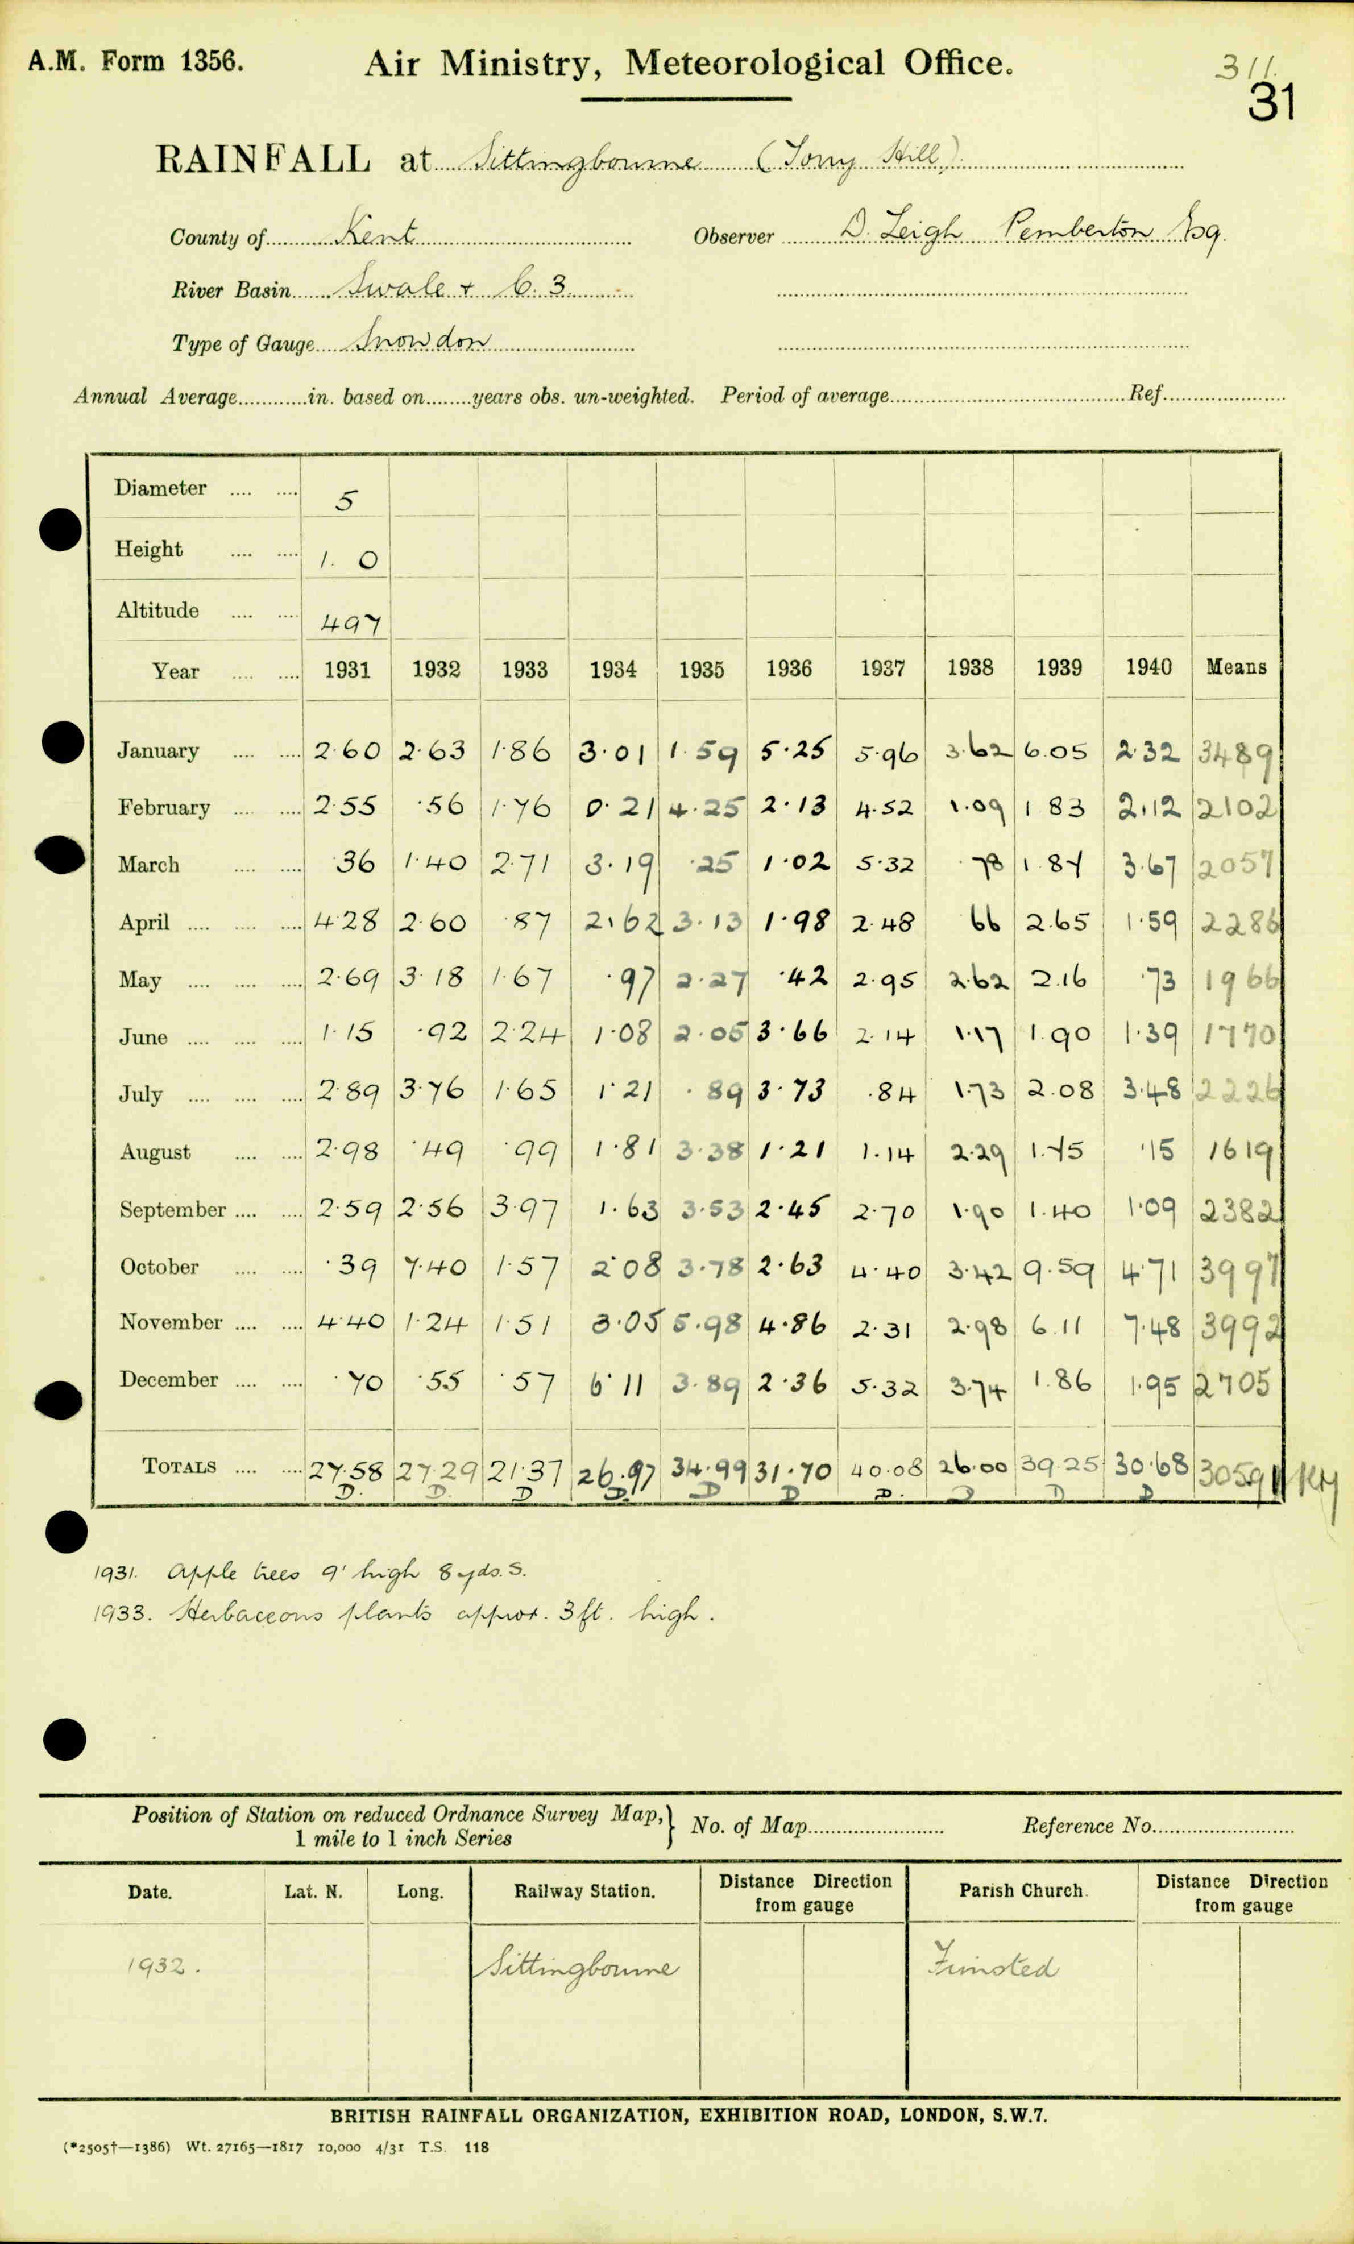 A.M. Form 1356.
Air Ministry, Meteorological Office.
311.
31
RAINFALL at Sittingbourne (Torry Hill)
County of Kent Observer D. Leigh Pemberton Esq.
River Basin Swale + C. 3
Type of Gauge Snowdon
Annual Average in. based on years obs. un-weighted. Period of average Ref
Diameter 5
Height 1. 0
Altitude 497
Year 1931 1932 1933 1934 1935 1936 1937 1938 1939 1940 Means
January 2.60 2.63 1.86 3.01 1.59 5.25 5.96 3.62 6.05 2.32 3489
February 2.55 .56 1.76 0.21 4.25 2.13 4.52 1.09 1 83 2.12 2102
March 36 1.40 2.71 3.19 .25 1.02 5.32 .78 1.87 3.67 2057
April 4.28 2.60 .87 2.62 3.13 1.98 2.48 66 2.65 1.59 2286
May 2.69 3.18 1.67 .97 2.27 .42 2.95 2.62 2.16 .73 1966
June 1.15 .92 2.24 1.08 2.05 3.66 2.14 1.17 1.90 1.39 1770
July 2.89 3.76 1.65 1.21 .89 3.73 .84 1.73 2.08 3.48 2226
August 2.98 .49 .99 1.81 3.38 1.21 1.14 2.29 1.75 .15 1619
September 2.59 2.56 3.97 1.63 3.53 2.45 2.70 1.90 1.40 1.09 2382
October .39 7.40 1.57 2.08 3.78 2.63 4.40 3.42 9.59 4.71 3997
November 4.40 1.24 1.51 3.05 5.98 4.86 2.31 2.98 6.11 7.48 3992
December .70 .55 .57 6.11 3.89 2.36 5.32 3.74 1.86 1.95 2705
TOTALS 27.58 27.29 21.37 26.97 34.99 31.70 40.08 26.00 39.25 30.68 30591
D. D. D D. D D D. D D D
1931. Apple trees 9' high 8 yds. S.
1933. Herbaceous plants approx. 3 ft. high.
Position of Station on reduced Ordnance Survey Map, No. of Map Reference No.
1 mile to 1 inch Series
Date. Lat. N. Long. Railway Station. Distance Direction from gauge Parish Church. Distance Direction from gauge
1932. Sittingbourne Frinsted
BRITISH RAINFALL ORGANIZATION, EXHIBITION ROAD, LONDON, S.W.7.
(*2505†—1386) Wt. 27165—1817 10,000 4/31 T.S. 118